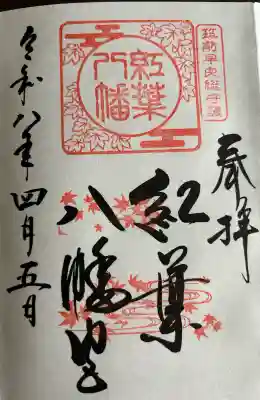 奉拝
筑前早良総守護
紅葉
八幡
紅葉
八幡宮
令和八年四月五日